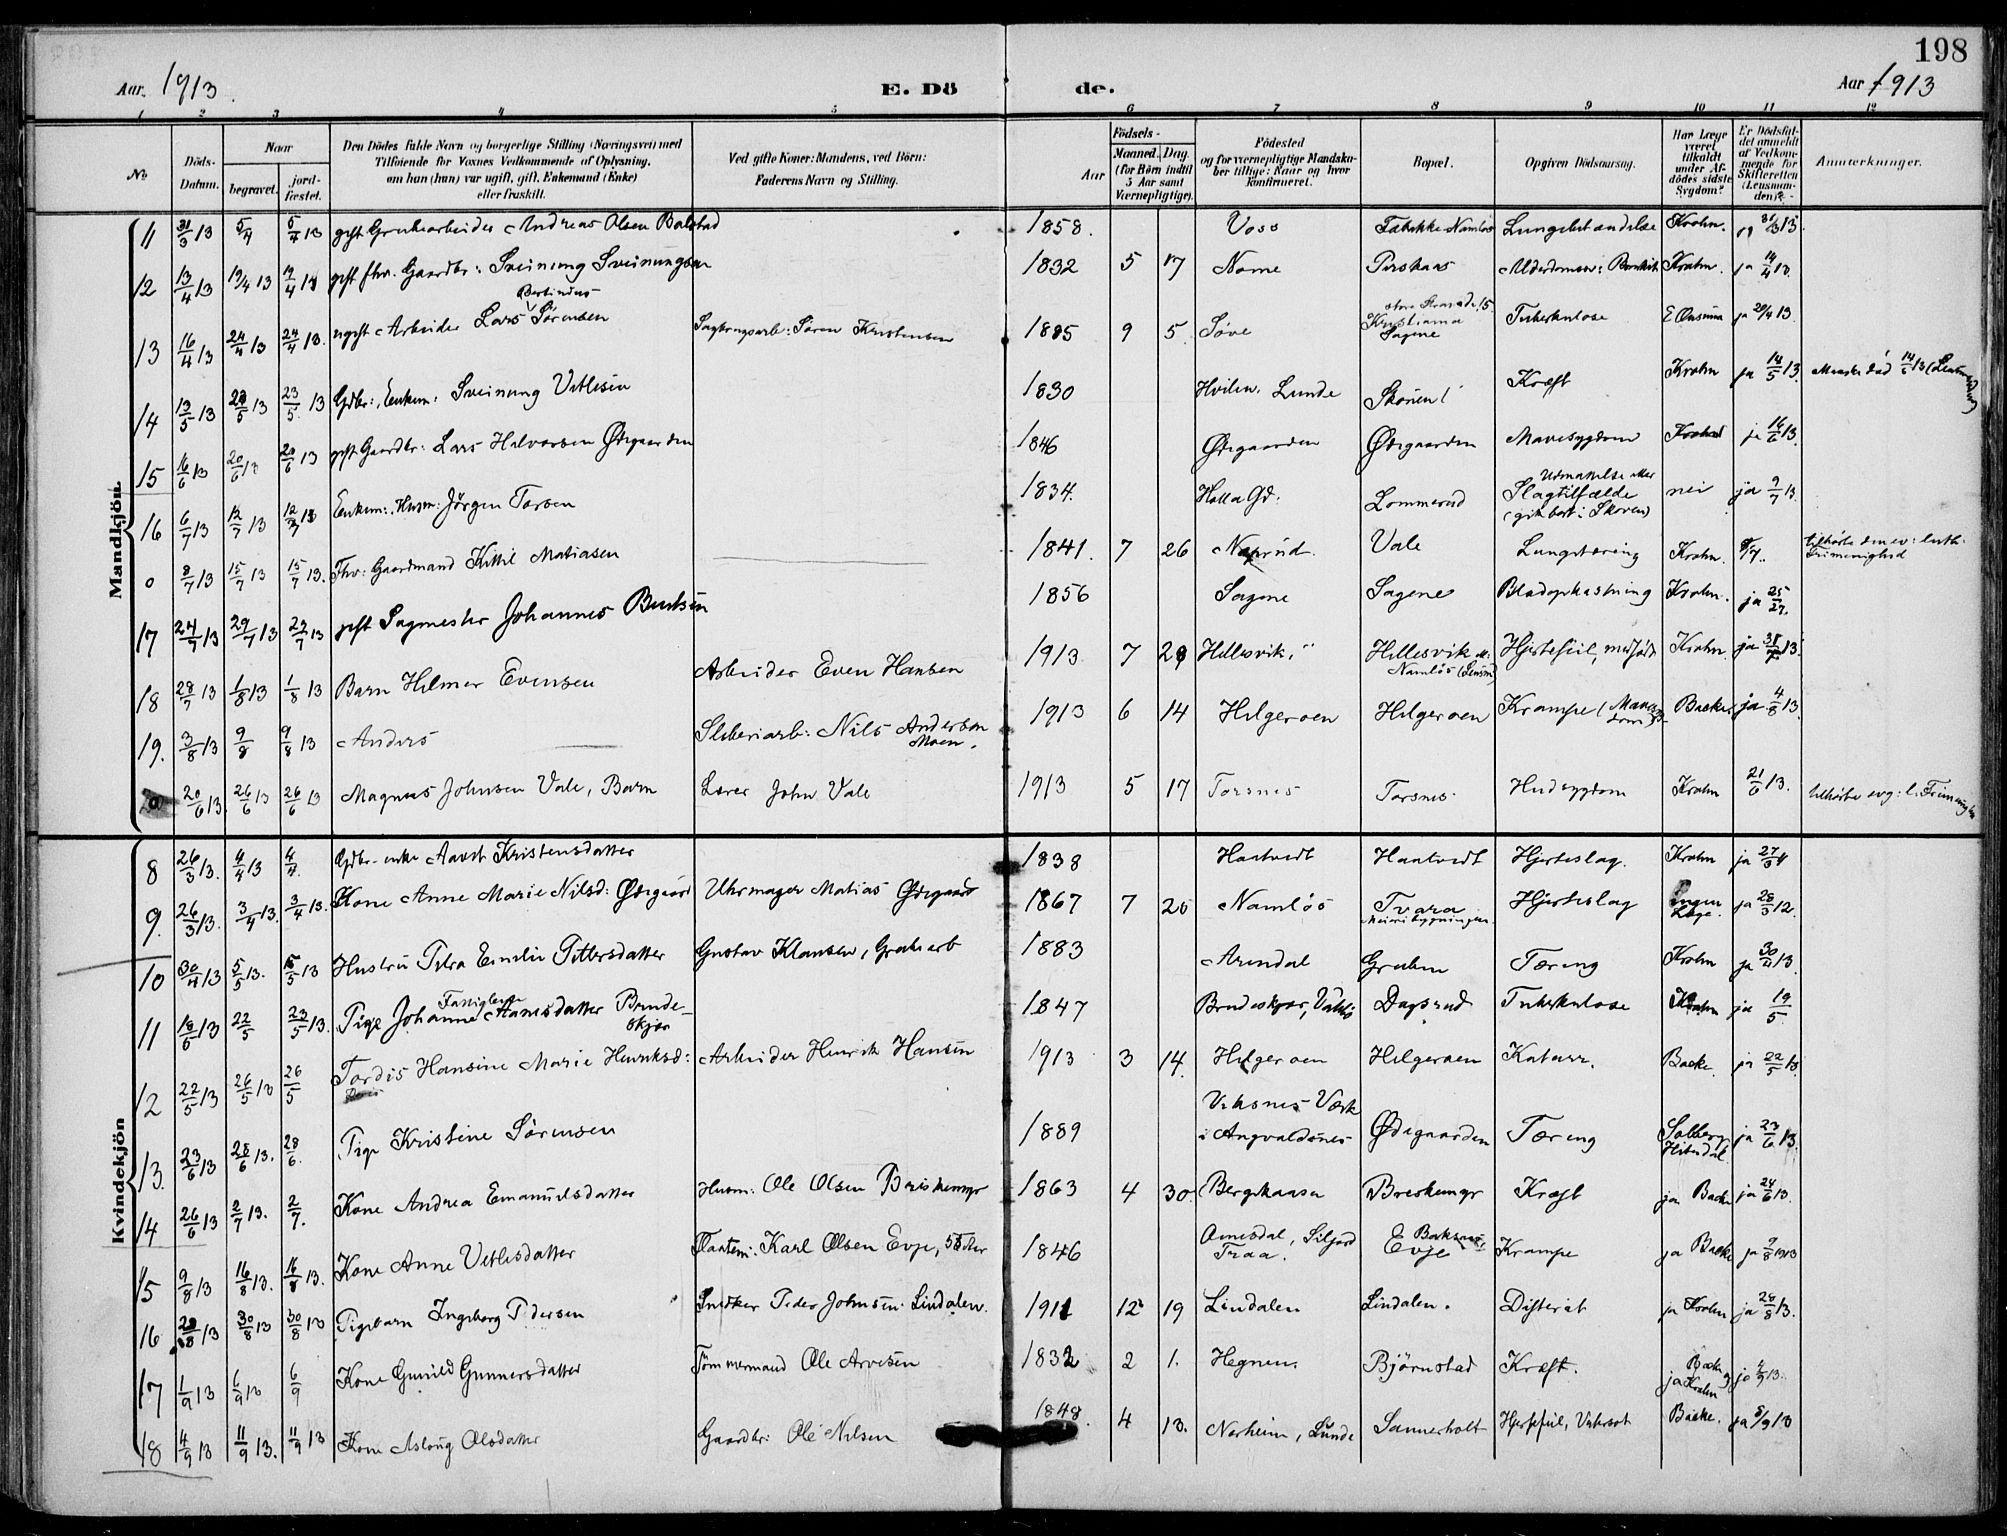 198
Aar. 1913.
E. Döde.
Aar 1913
1 2 3 4 5 6 7 8 9 10 11 12
No.
Döds-Datum.
Naar
begravet.
jordfæstet.
Den Dödes fulde Navn og borgerlige Stilling (Næringsvei) med Tilføiende for Voxnes Vedkommende af Oplysning, om han (hun) var ugift, gift, Enkemand (Enke) eller fraskilt.
Ved gifte Koner: Mandens, ved Börn: Faderens Navn og Stilling.
Födsels-
Aar
Maaned. Dag.
(for Börn indtil 5 Aar samt Værnepligtige).
Födested og for værnepligtige Mandskaber tillige: Naar og hvor konfirmeret.
Bopæl.
Opgiven Dödsaarsag.
Har Læge været tilkaldt under Afdödes sidste Sygdom?
Er Dödsfaldet anmeldt af Vedkommende for Skifteretten (Lensmanden)?
Anmerkninger.
Mandkjön.
11 31/3 13 5/4 5/4 13 gift Grubearbeider Andreas Olsen Bolstad 1858. Voss Lungebetændelse Krohn. ja 31/3 13
12 13/4 13 19/4 13 19/4 13 gift fhv. Gaardbr: Sveinung Sveinungsen 1832 5 17 Nome Krohn. ja 14/4 13.
13 16/4 13 24/4 13 24/4 13. ugift Arbeider Lars Bertinius Sörensen Sagbrugsarb: Sören Kristensen 1885 9 5. Söve Kristiania Sagene Tuberkulose ja 20/4 13.
14 13/5 13 23/5 13 23/5 13 Gdbr: Enkem: Sveinung Vetlesen 1830 Hvilen. Lunde Kræft Krohn ja 14/5 13.
15 16/6 13 20/6 13 20/6 13 gift Gaardbr: Lars Halvorsen Ödegaarden 1846 Ödegaarden Ödegaarden Mavesygdom Krohn ja 16/6 13.
16 6/7 13 12/7 13 12/7 13 Enkem: Husm: Jörgen Torsen 1834. Holla Gd: Lommerud Slagtilfælde nei ja 9/7 13.
0 8/7 13 15/7 13 15/7 13. Fhv: Gaardmand Kittil Matiasen 1841. 7 26 Vale Lungetæring Krohn. tilhörte den ev: luth: Frimenighed
17 24/7 13 29/7 13 29/7 13 gift Sagmester Johannes Bentsen 1856 Sagene Sagene Blodopkastning Krohn. ja 25/7.
18 28/7 13 1/8 13 1/8 13 Barn Hilmer Evensen Arbeider Even Hansen 1913 7 Hellesvik Hellesvik Namlös Hjertefeil, medfödt Krohn ja 13.
19. 3/8 13 9/8 9/8 13 Anders Sliberiarb: Nils Andersen Moen. 1913 6 14 Helgeroen Helgeroen Krampe Backe ja 4/8 13.
0 20/6 13. 26/6 13 26/6 13 Magnus Johnsen Vale, Barn Lærer John Vale 1913 5 17 Torsnes Torsnes Hudsygdom Krohn 21/6 13. tilhörte evg: l. Frimenigh
Kvindekjön
8 26/3 13. 4/4 13 4/4. Gdbr-enke Aavet Kristensdatter 1838 Haatvedt Haatvedt Hjerteslag. Krohn ja 27/3
9. 26/3 13. 3/4 13. 3/4 13. Kone Anne Marie Nilsd: Ödegaard Uhrmager Matias Ödegaard 1867 7 20 Namlös Tvara Hjerteslag Ingen Læge. ja 28/3
10 30/4 13 5/5 13. 5/5 13 Hustru Petra Emilie Pettersdatter Gustav Klausen, Grubearb 1883 Arendal Gruben Tæring Krohn ja 30/4 13.
11 18/5 13 22/5 23/5 13. Pige Johanne Hansdatter Brudeskjær 1847 Dagsrud Tuberkulose Krohn ja 19/5.
12 22/5 13 26/5 13 26/5 Tordis Hansine Marie Henriksd: Arbeider Henrik Hansen 1913 3 14. Helgeroen Helgeroen Katarr. Backe. ja 22/5 13.
13. 23/6 13 28/6 13. 28/6. Pige Kristine Sörensen 1889 Viksnes Værk i Augvaldsnes Ödegaarden Tæring Solberg Hitterdal. ja 23/6 13.
14 26/6 13 2/7 13. 2/7. Kone Andrea Emanuelsdatter Husm: Ole Olsen Briskemyr 1863 4 30. Bergskaasa Breskemyr Kræft ja Backe ja 24/6 13.
15 9/8 13 16/8 13. 16/8 13. Kone Anne Vetlesdatter Karl Olsen Evje 1846 Amesdal, Siljord Traa. Evje Krampe ja Backe ja 9/8 1913
16 20/8 13 30/8 13 30/8 13 Pigebarn Ingeborg Pedersen Snedker Peder Johnsen Lindalen. 1911 12 19 Lindalen Lindalen. Difterit ja Krohn ja 28/8 13.
17 1/9 13 6/9 13 6/9 Kone Gunild Gunnersdatter Tömmermand Ole Arvesen 1832 2 1. Hegnen. Björnstad Kræft. ja Backe og Krohn ja 4/9 13.
18 4/9 13 11/9 13. 11/9 13 Kone Aslaug Olsdatter Gaardbr: Ole Nilsen 1848. 4 13. Norheim, Lunde Sannerholt Hjertefeil, Vatersot Backe. ja 5/9 13